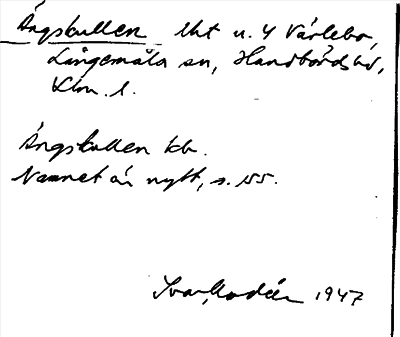 Ängskullen lht u. 4 Värlebo,
Långemåla sn, Handbörds hd,
Klm. l.
Ängskullen kb.
Namnet är nytt, s. 155.
Ivar Modéer 1947